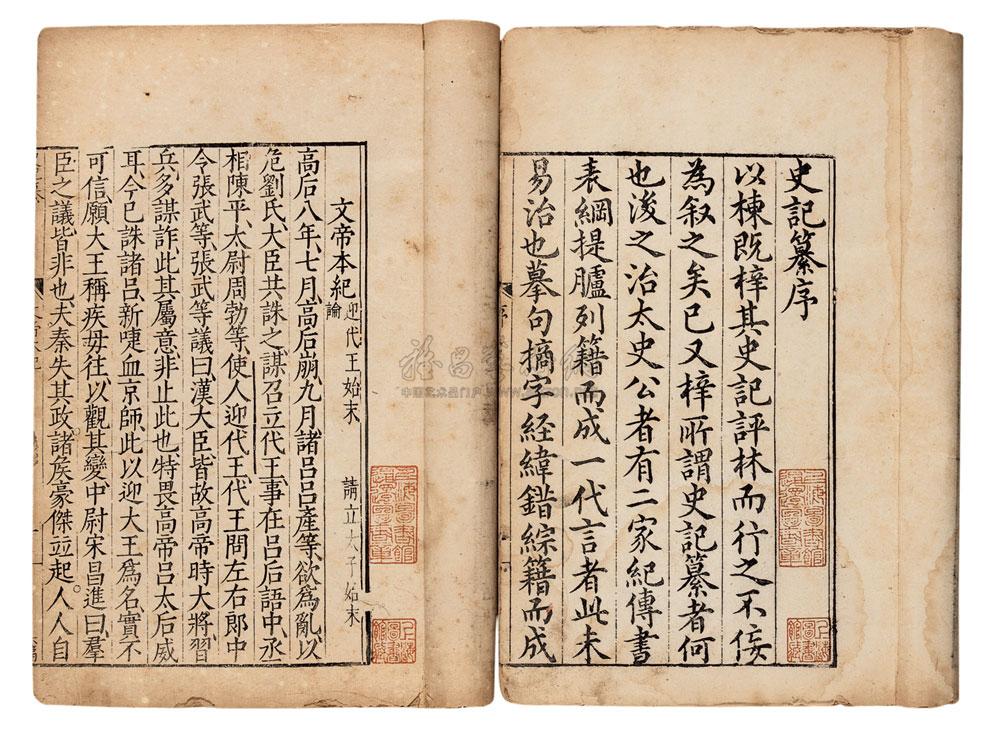 史記纂序
以棟既梓其史記評林而行之不佞
為叙之矣已又梓所謂史記纂者何
也浚之治太史公者有二家紀傳書
表綱提臚列籍而成一代言者此未
易治也摹句摘字経緯錯綜籍而成
文帝本紀 迎代王始末 請立太子始末
論
高后八年七月高后崩九月諸吕吕產等欲爲亂以
危劉氏大臣共誅之謀召立代王事在吕后語中丞
相陳平太尉周勃等使人迎代王代王問左右郎中
令張武等張武等議曰漢大臣皆故高帝時大將習
兵多謀詐此其屬意非止此也特畏高帝吕太后威
耳今已誅諸吕新啑血京師此以迎大王爲名實不
可信願大王稱疾毋往以觀其變中尉宋昌進曰羣
臣之議皆非也夫秦失其政諸侯豪傑竝起人人自